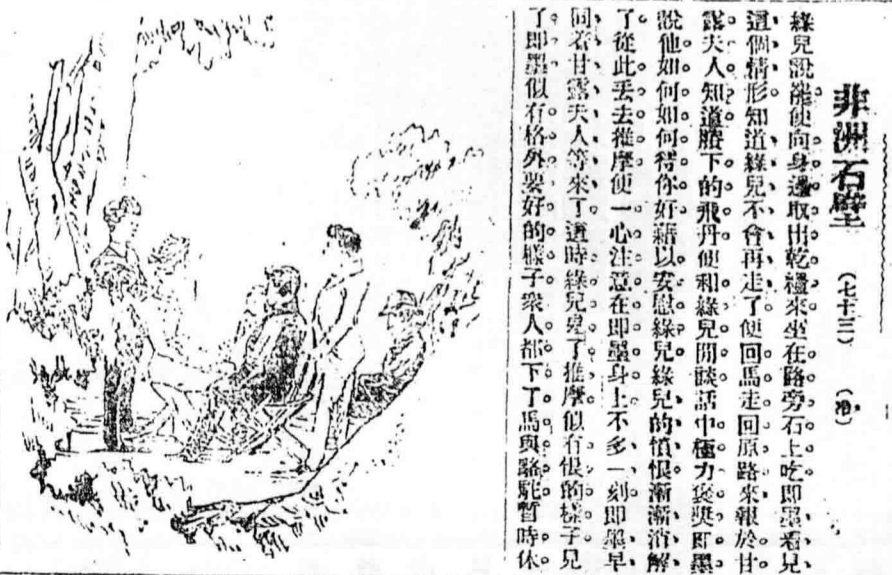 非洲石壁 (七十三) (冷)
綠兒說罷便向身邊取出乾糧來坐在路旁石上吃即墨看見
這個情形知道綠兒不會再走了便回馬走回原路來報於甘
露夫人知道膝下的飛丹便和綠兒閒談話中極力褒獎即墨
說他如何如何待你好藉以安慰綠兒綠兒的憤恨漸漸消解
了從此丟去推摩便一心注意在即墨身上不多一刻即墨早
同着甘露夫人等來了這時綠兒見了推摩似有恨的樣子見
了即墨似有格外要好的樣子眾人都下了馬與駱駝暫時休